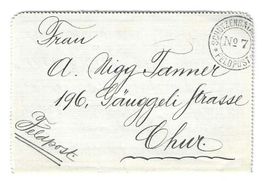 Frau
A. Nigg Tanner
196, Gäuggeli Strasse
Chur.
Feldpost.
No 7
FELDPOST